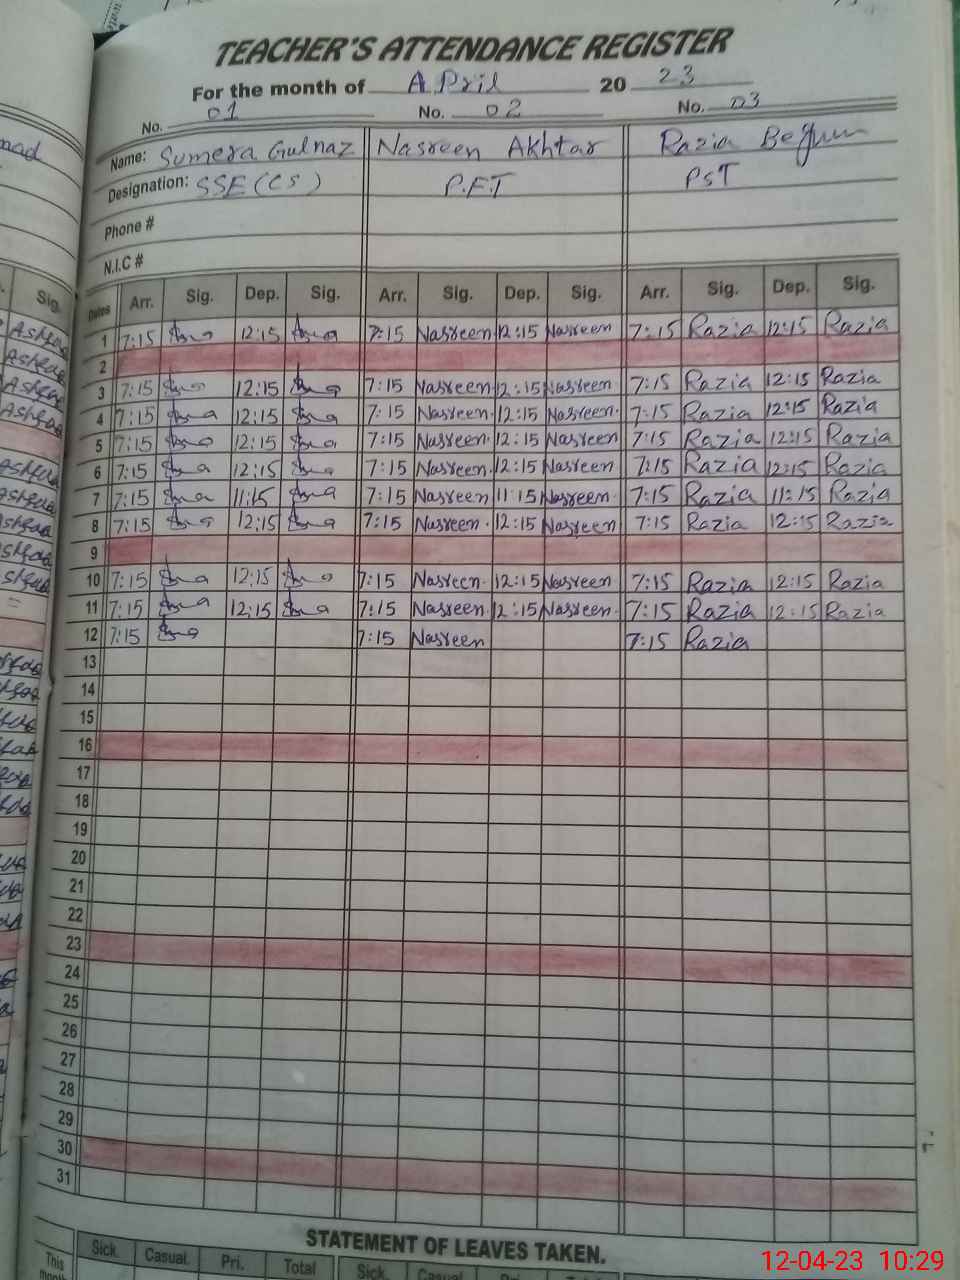 TEACHER'S ATTENDANCE REGISTER
For the month of April 20 23
No. 01 No. 02 No. 03
Name: Sumera Gulnaz Nasreen Akhtar Razia Begum
Designation: SSE (CS) P.E.T PST
Phone #
N.I.C #
Dates Arr. Sig. Dep. Sig. Arr. Sig. Dep. Sig. Arr. Sig. Dep. Sig.
1 7:15 12:15 7:15 Nasreen 12:15 Nasreen 7:15 Razia 12:15 Razia
2
3 7:15 12:15 7:15 Nasreen 12:15 Nasreen 7:15 Razia 12:15 Razia
4 7:15 12:15 7:15 Nasreen 12:15 Nasreen 7:15 Razia 12:15 Razia
5 7:15 12:15 7:15 Nasreen 12:15 Nasreen 7:15 Razia 12:15 Razia
6 7:15 12:15 7:15 Nasreen 12:15 Nasreen 7:15 Razia 12:15 Razia
7 7:15 11:15 7:15 Nasreen 11:15 Nasreen 7:15 Razia 11:15 Razia
8 7:15 12:15 7:15 Nasreen 12:15 Nasreen 7:15 Razia 12:15 Razia
9
10 7:15 12:15 7:15 Nasreen 12:15 Nasreen 7:15 Razia 12:15 Razia
11 7:15 12:15 7:15 Nasreen 12:15 Nasreen 7:15 Razia 12:15 Razia
12 7:15 7:15 Nasreen 7:15 Razia
13
14
15
16
17
18
19
20
21
22
23
24
25
26
27
28
29
30
31
STATEMENT OF LEAVES TAKEN.
This month Sick. Casual. Pri. Total Sick. Casual
12-04-23 10:29